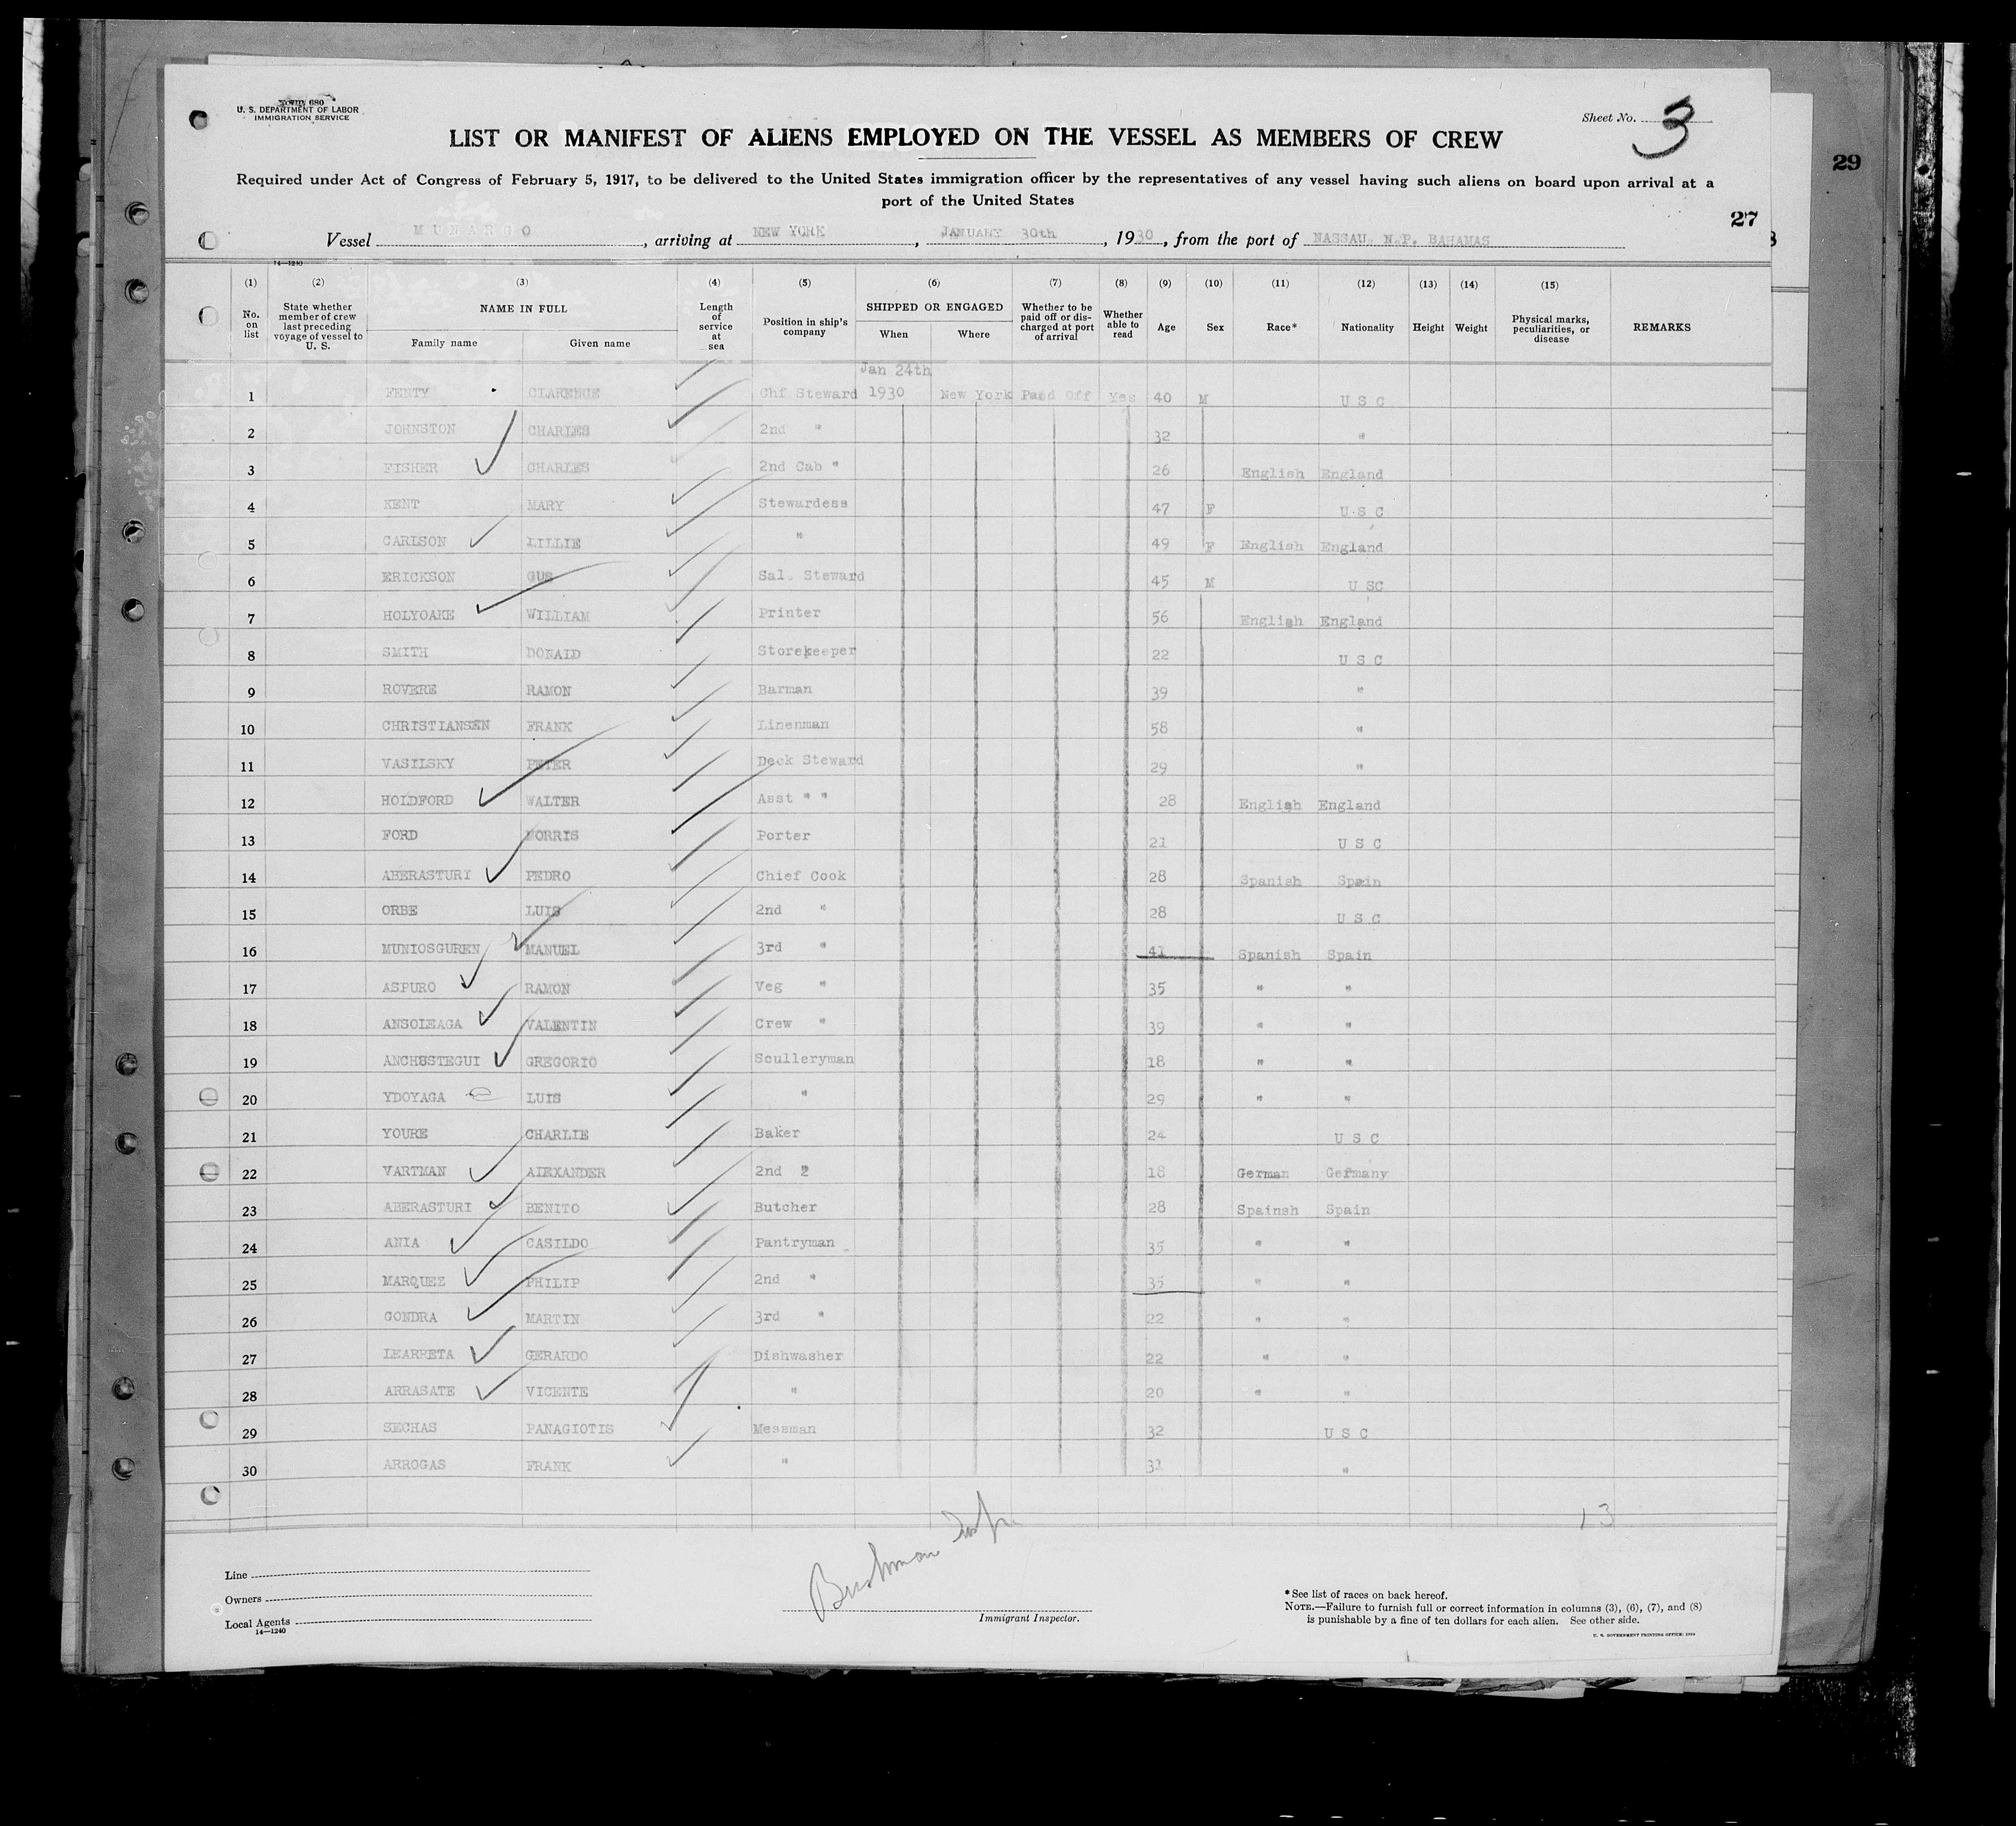 FORM 680
U. S. DEPARTMENT OF LABOR
IMMIGRATION SERVICE
Sheet No. 3
LIST OR MANIFEST OF ALIENS EMPLOYED ON THE VESSEL AS MEMBERS OF CREW
29
Required under Act of Congress of February 5, 1917, to be delivered to the United States immigration officer by the representatives of any vessel having such aliens on board upon arrival at a
port of the United States
27
Vessel MUNARGO, arriving at NEW YORK, JANUARY 30th, 1930, from the port of NASSAU, N.P. BAHAMAS
14—1240
(1) (2) (3) (4) (5) (6) (7) (8) (9) (10) (11) (12) (13) (14) (15)
No. on list State whether member of crew last preceding voyage of vessel to U. S. NAME IN FULL Family name Given name Length of service at sea Position in ship's company SHIPPED OR ENGAGED When Where Whether to be paid off or discharged at port of arrival Whether able to read Age Sex Race* Nationality Height Weight Physical marks, peculiarities, or disease REMARKS
Jan 24th
1 FENTY CLARENCE Chf Steward 1930 New York Paid Off Yes 40 M U S C
2 JOHNSTON CHARLES 2nd " 32 "
3 FISHER CHARLES 2nd Cab " 26 English England
4 KENT MARY Stewardess 47 F U S C
5 CARLSON LILLIE " 49 F English England
6 ERICKSON GUS Sal. Steward 45 M U SC
7 HOLYOAKE WILLIAM Printer 56 English England
8 SMITH DONALD Storekeeper 22 U S C
9 ROVERE RAMON Barman 39 "
10 CHRISTIANSEN FRANK Linenman 58 "
11 VASILSKY PETER Deck Steward 29 "
12 HOLDFORD WALTER Asst " " 28 English England
13 FORD MORRIS Porter 21 U S C
14 ABERASTURI PEDRO Chief Cook 28 Spanish Spain
15 ORBE LUIS 2nd " 28 U S C
16 MUNIOSGUREN MANUEL 3rd " 41 Spanish Spain
17 ASPURO RAMON Veg " 35 " "
18 ANSOLEAGA VALENTIN Crew " 39 " "
19 ANCHUSTEGUI GREGORIO Sculleryman 18 " "
20 YDOYAGA LUIS " 29 " "
21 YOURE CHARLIE Baker 24 U S C
22 VARTMAN ALEXANDER 2nd 2 18 German Germany
23 ABERASTURI BENITO Butcher 28 Spainsh Spain
24 ANIA CASILDO Pantryman 35 " "
25 MARQUEZ PHILIP 2nd " 35 " "
26 GONDRA MARTIN 3rd " 22 " "
27 LEARRETA GERARDO Dishwasher 22 " "
28 ARRASATE VICENTE " 20 " "
29 SECHAS PANAGIOTIS Messman 32 U S C
30 ARROGAS FRANK " "
13
Bushman Insp.
Line
Owners
Local Agents
14—1240
Immigrant Inspector.
* See list of races on back hereof.
NOTE.—Failure to furnish full or correct information in columns (3), (6), (7), and (8)
is punishable by a fine of ten dollars for each alien. See other side.